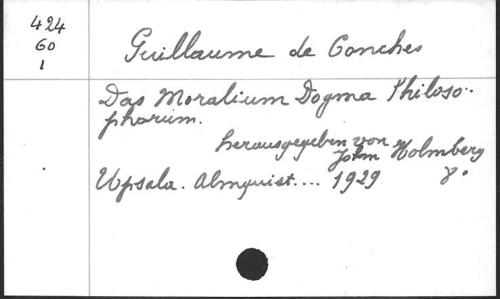 424
60
1
Guillaume de Conches
Das Moralium Dogma Philoso-
phorum.
herausgegeben von
John Holmberg
Upsala. Almquist.... 1929 8°